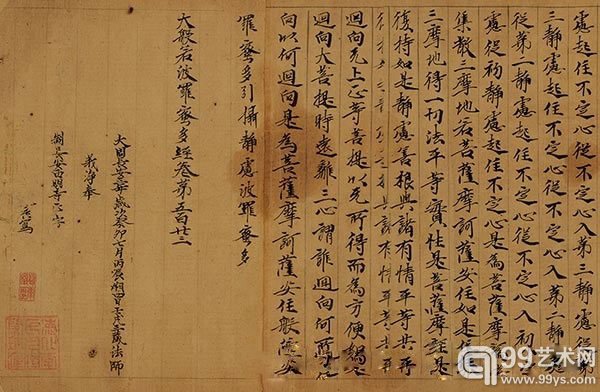 慮起住不定心從不定心入第三靜慮從第
三靜慮起住不定心從不定心入第二靜慮
從第二靜慮起住不定心從不定心入初靜
慮從初靜慮起住不定心是為菩薩摩訶薩
集散三摩地若菩薩摩訶薩安住如是集散
三摩地得一切法平等實性是菩薩摩訶薩
復持如是靜慮善根與諸有情平等共
迴向无上正等菩提以无所得而為方便
迴向大菩提時遠離三心謂誰迴向何所
向以何迴向是為菩薩摩訶薩安住般羅蜜
羅蜜多引攝靜慮波羅蜜多
大般若波羅蜜多經卷第五百廿三
大周長安 歲次癸卯七月丙戌朔 三藏法師
義淨奉
長安西明寺
寫
99艺术网
www.99ys.com